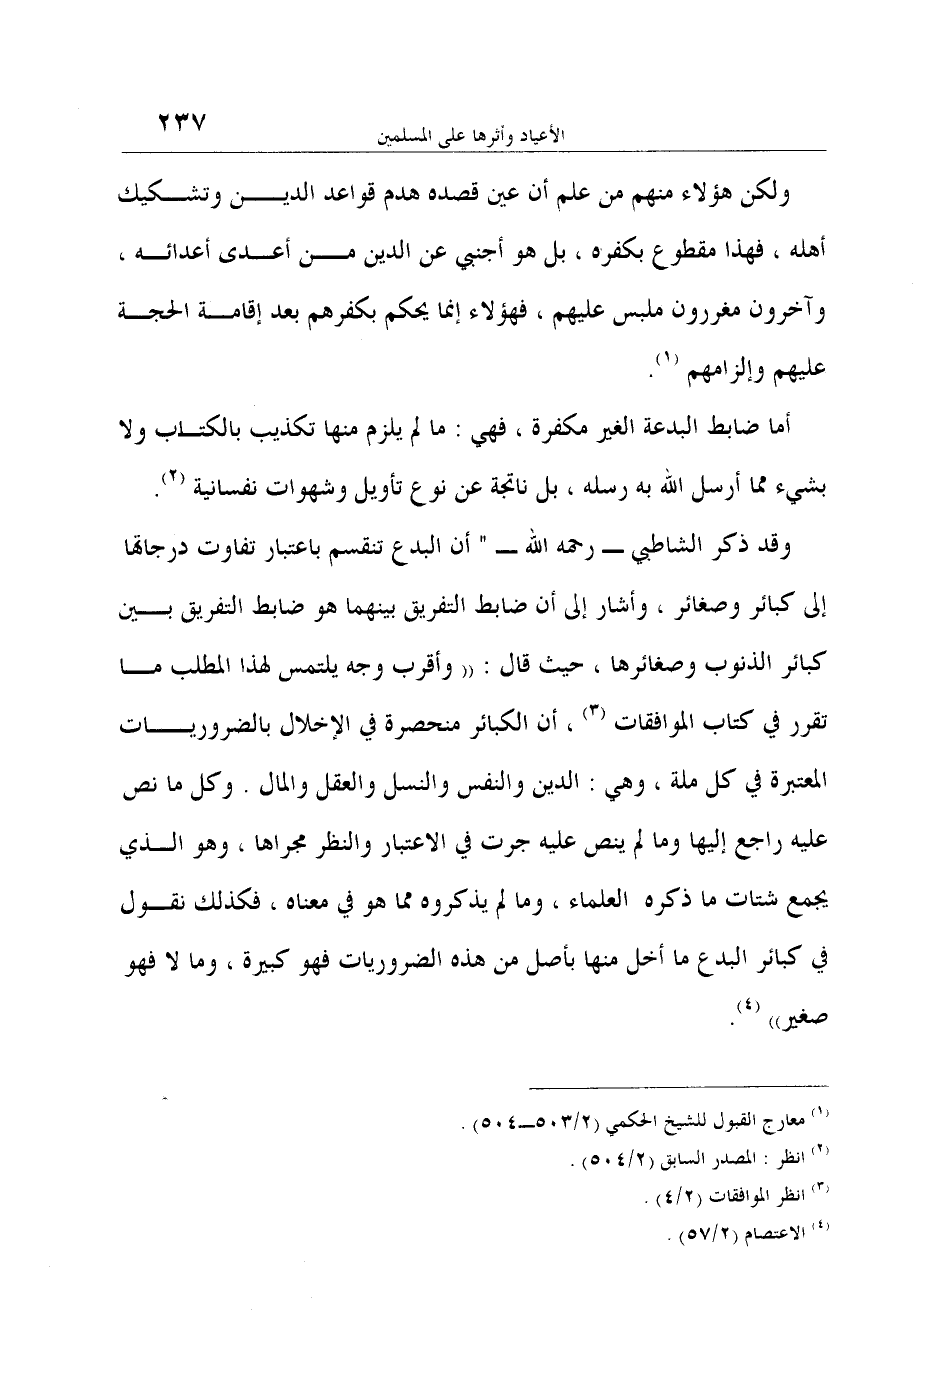 ٢٣٧
الأعياد وأثرها على المسلمين
ولكن هؤلاء منهم من علم أن عين قصده هدم قواعد الديـــن وتشـكيك
أهله ، فهذا مقطوع بكفره ، بل هو أجنبي عن الدين مـــن أعـدى أعدائـه ،
وآخرون مغررون ملبس عليهم ، فهؤلاء إنما يحكم بكفرهم بعد إقامـة الحجـة
عليهم وإلزامهم (١).
أما ضابط البدعة الغير مكفرة ، فهي : ما لم يلزم منها تكذيب بالكتـاب ولا
بشيء مما أرسل الله به رسله ، بل ناتجة عن نوع تأويل وشهوات نفسانية (٢).
وقد ذكر الشاطبي ــ رحمه الله ــ " أن البدع تنقسم باعتبار تفاوت درجاتها
إلى كبائر وصغائر ، وأشار إلى أن ضابط التفريق بينهما هو ضابط التفريق بـــين
كبائر الذنوب وصغائرها ، حيث قال : (( وأقرب وجه يلتمس لهذا المطلب مـا
تقرر في كتاب الموافقات (٣) ، أن الكبائر منحصرة في الإخلال بالضروريـــات
المعتبرة في كل ملة ، وهي : الدين والنفس والنسل والعقل والمال . وكل ما نص
عليه راجع إليها وما لم ينص عليه جرت في الاعتبار والنظر مجراها ، وهو الـذي
يجمع شتات ما ذكره العلماء ، وما لم يذكروه مما هو في معناه ، فكذلك نقـول
في كبائر البدع ما أخل منها بأصل من هذه الضروريات فهو كبيرة ، وما لا فهو
صغير)) (٤).
(١) معارج القبول للشيخ الحكمي (٥٠٣/٢ــ٥٠٤) .
(٢) انظر : المصدر السابق (٥٠٤/٢) .
(٣) انظر الموافقات (٤/٢) .
(٤) الاعتصام (٥٧/٢) .